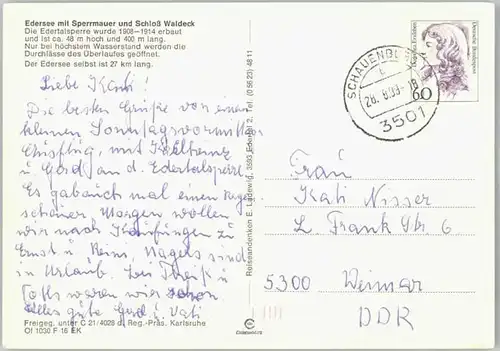 Edersee mit Sperrmauer und Schloß Waldeck
Die Edertalsperre wurde 1908-1914 erbaut
und ist ca. 48 m hoch und 400 m lang.
Nur bei höchstem Wasserstand werden die
Durchlässe des Überlaufes geöffnet.
Der Edersee selbst ist 27 km lang.
Liebe Kati!
Die besten Grüße von einem
kleinen Sonntagsvormittags
Ausflug, mit
u. Gerd an d. Edertalsperre
Es mal einen Regen
schöner Morgen wollen
wir nach Kaufungen zu
Ernst u. Reini, Nagels sind
in Urlaub. Bei u
waren wir schon.
Alles gute Gerd u. Vati
Freigeg. unter C 21/4028 d. Reg.-Präs. Karlsruhe
Öl 1030 F 16 EK
Reiseandenken E. Ladewig, 3593 Edertal 2, Tel. (0 56 23) 48 11
SCHAUENBURG
28. 8.89-18
3501
60
Deutsche Bundespost
Frau
Kati Nisser
L. Frank Str. 6
5300 Weimar
DDR